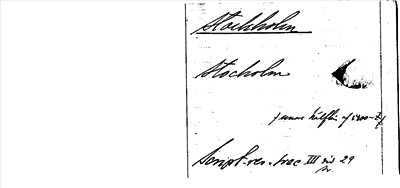 Stockholm
Stocholm
senare hälften af 1400-t
Script. rer. svec III
29